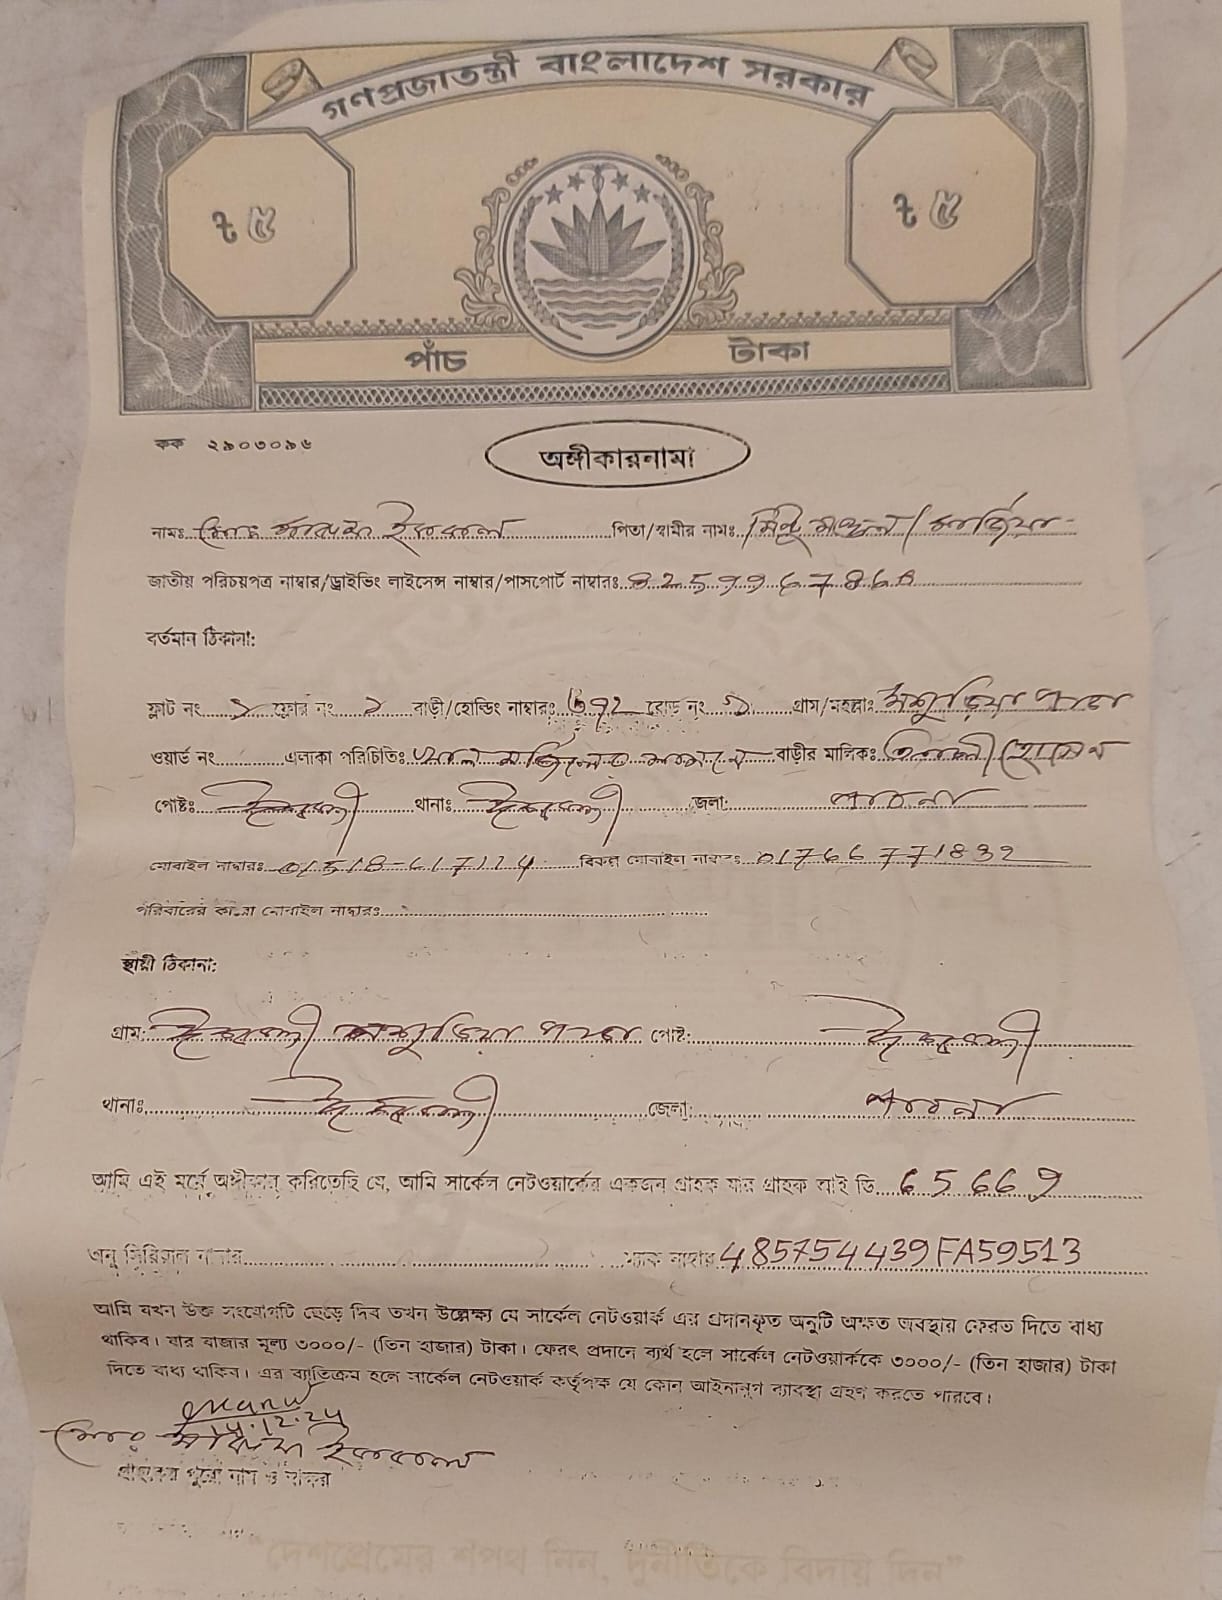 গণপ্রজাতন্ত্রী বাংলাদেশ সরকার
৳ ৫ ৳ ৫
পাঁচ টাকা
কক ২৯০৩০৯৬
অঙ্গীকারনামা
নামঃ মোঃ ইকবাল পিতা/স্বামীর নামঃ
জাতীয় পরিচয়পত্র নাম্বার/ড্রাইভিং লাইসেন্স নাম্বার/পাসপোর্ট নাম্বারঃ
বর্তমান ঠিকানা:
ফ্লাট নং ফ্লোর নং বাড়ী/হোল্ডিং নাম্বারঃ রোড নং গ্রাম/মহল্লাঃ মশুড়িয়া পাড়া
ওয়ার্ড নং এলাকা পরিচিতিঃ বাড়ীর মালিকঃ হোসেন
পোষ্টঃ ঈশ্বরদী থানাঃ ঈশ্বরদী জেলা: পাবনা
মোবাইল নাম্বারঃ 01518-617124 বিকল্প মোবাইল নাম্বারঃ 01766771832
পরিবারের কারো মোবাইল নাম্বারঃ
স্থায়ী ঠিকানা:
গ্রাম: ঈশ্বরদী মশুড়িয়া পাড়া পোষ্ট: ঈশ্বরদী
থানাঃ ঈশ্বরদী জেলা: পাবনা
আমি এই মর্মে অঙ্গীকার করিতেছি যে, আমি সার্কেল নেটওয়ার্কের একজন গ্রাহক যার গ্রাহক আই ডি 65669
অনু সিরিয়াল নাম্বার ম্যাক নাম্বার 485754439FA59513
আমি যখন উক্ত সংযোগটি ছেড়ে দিব তখন উল্লেক্ষ্য যে সার্কেল নেটওয়ার্ক এর প্রদানকৃত অনুটি অক্ষত অবস্থায় ফেরত দিতে বাধ্য
থাকিব। যার বাজার মূল্য ৩০০০/- (তিন হাজার) টাকা। ফেরৎ প্রদানে ব্যর্থ হলে সার্কেল নেটওয়ার্ককে ৩০০০/- (তিন হাজার) টাকা
দিতে বাধ্য থাকিব। এর ব্যাতিক্রম হলে সার্কেল নেটওয়ার্ক কর্তৃপক্ষ যে কোন আইনানুগ ব্যাবস্থা গ্রহণ করতে পারবে।
মোঃ ইকবাল
গ্রাহকের পুরো নাম ও স্বাক্ষর
"দেশপ্রেমের শপথ নিন, দুর্নীতিকে বিদায় দিন"